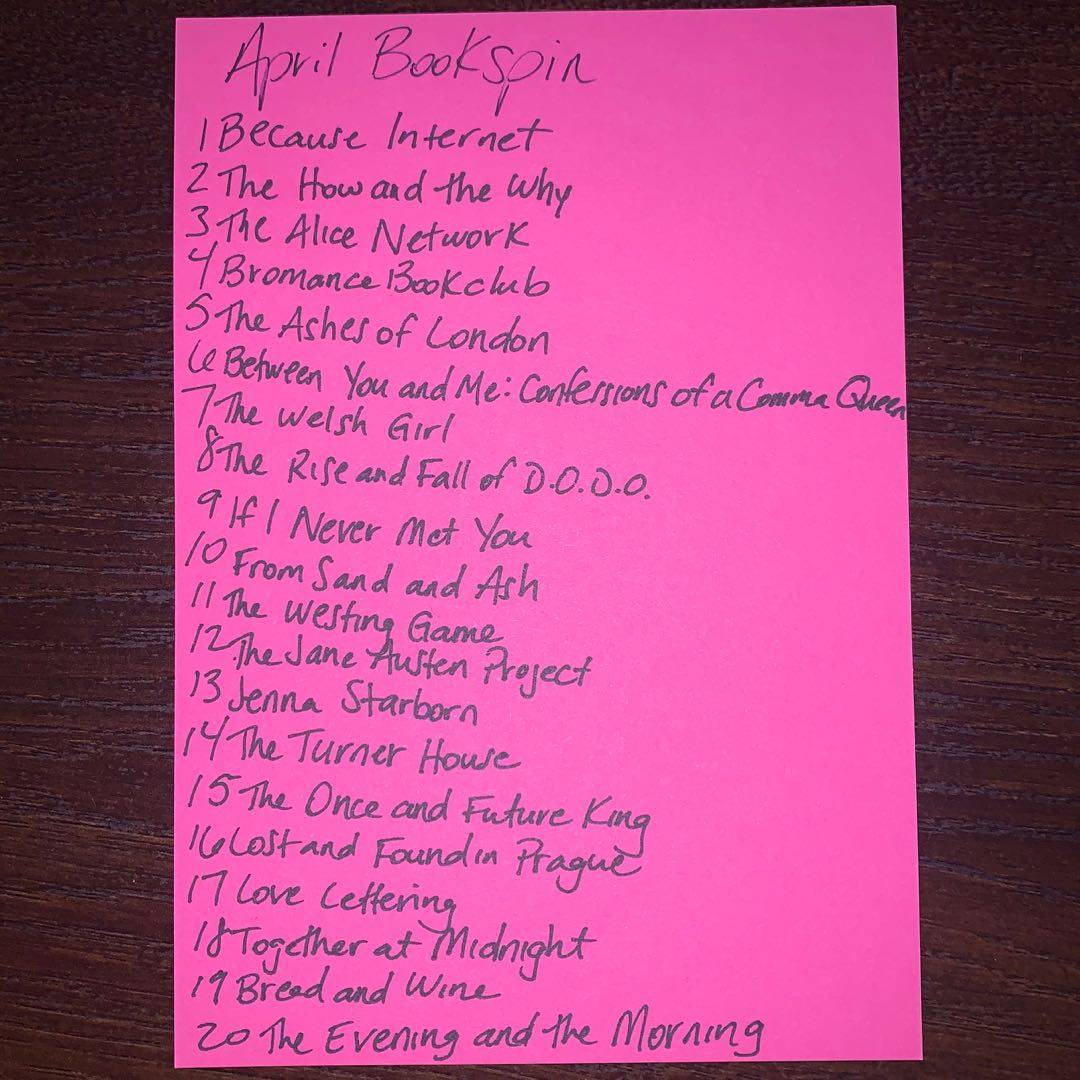 April Bookspin
1 Because Internet
2 The How and the Why
3 The Alice Network
4 Bromance Bookclub
5 The Ashes of London
6 Between You and Me: Confessions of a Comma Queen
7 The Welsh Girl
8 The Rise and Fall of D.O.D.O.
9 If I Never Met You
10 From Sand and Ash
11 The Westing Game
12 The Jane Austen Project
13 Jenna Starborn
14 The Turner House
15 The Once and Future King
16 Lost and Found in Prague
17 Love Lettering
18 Together at Midnight
19 Bread and Wine
20 The Evening and the Morning